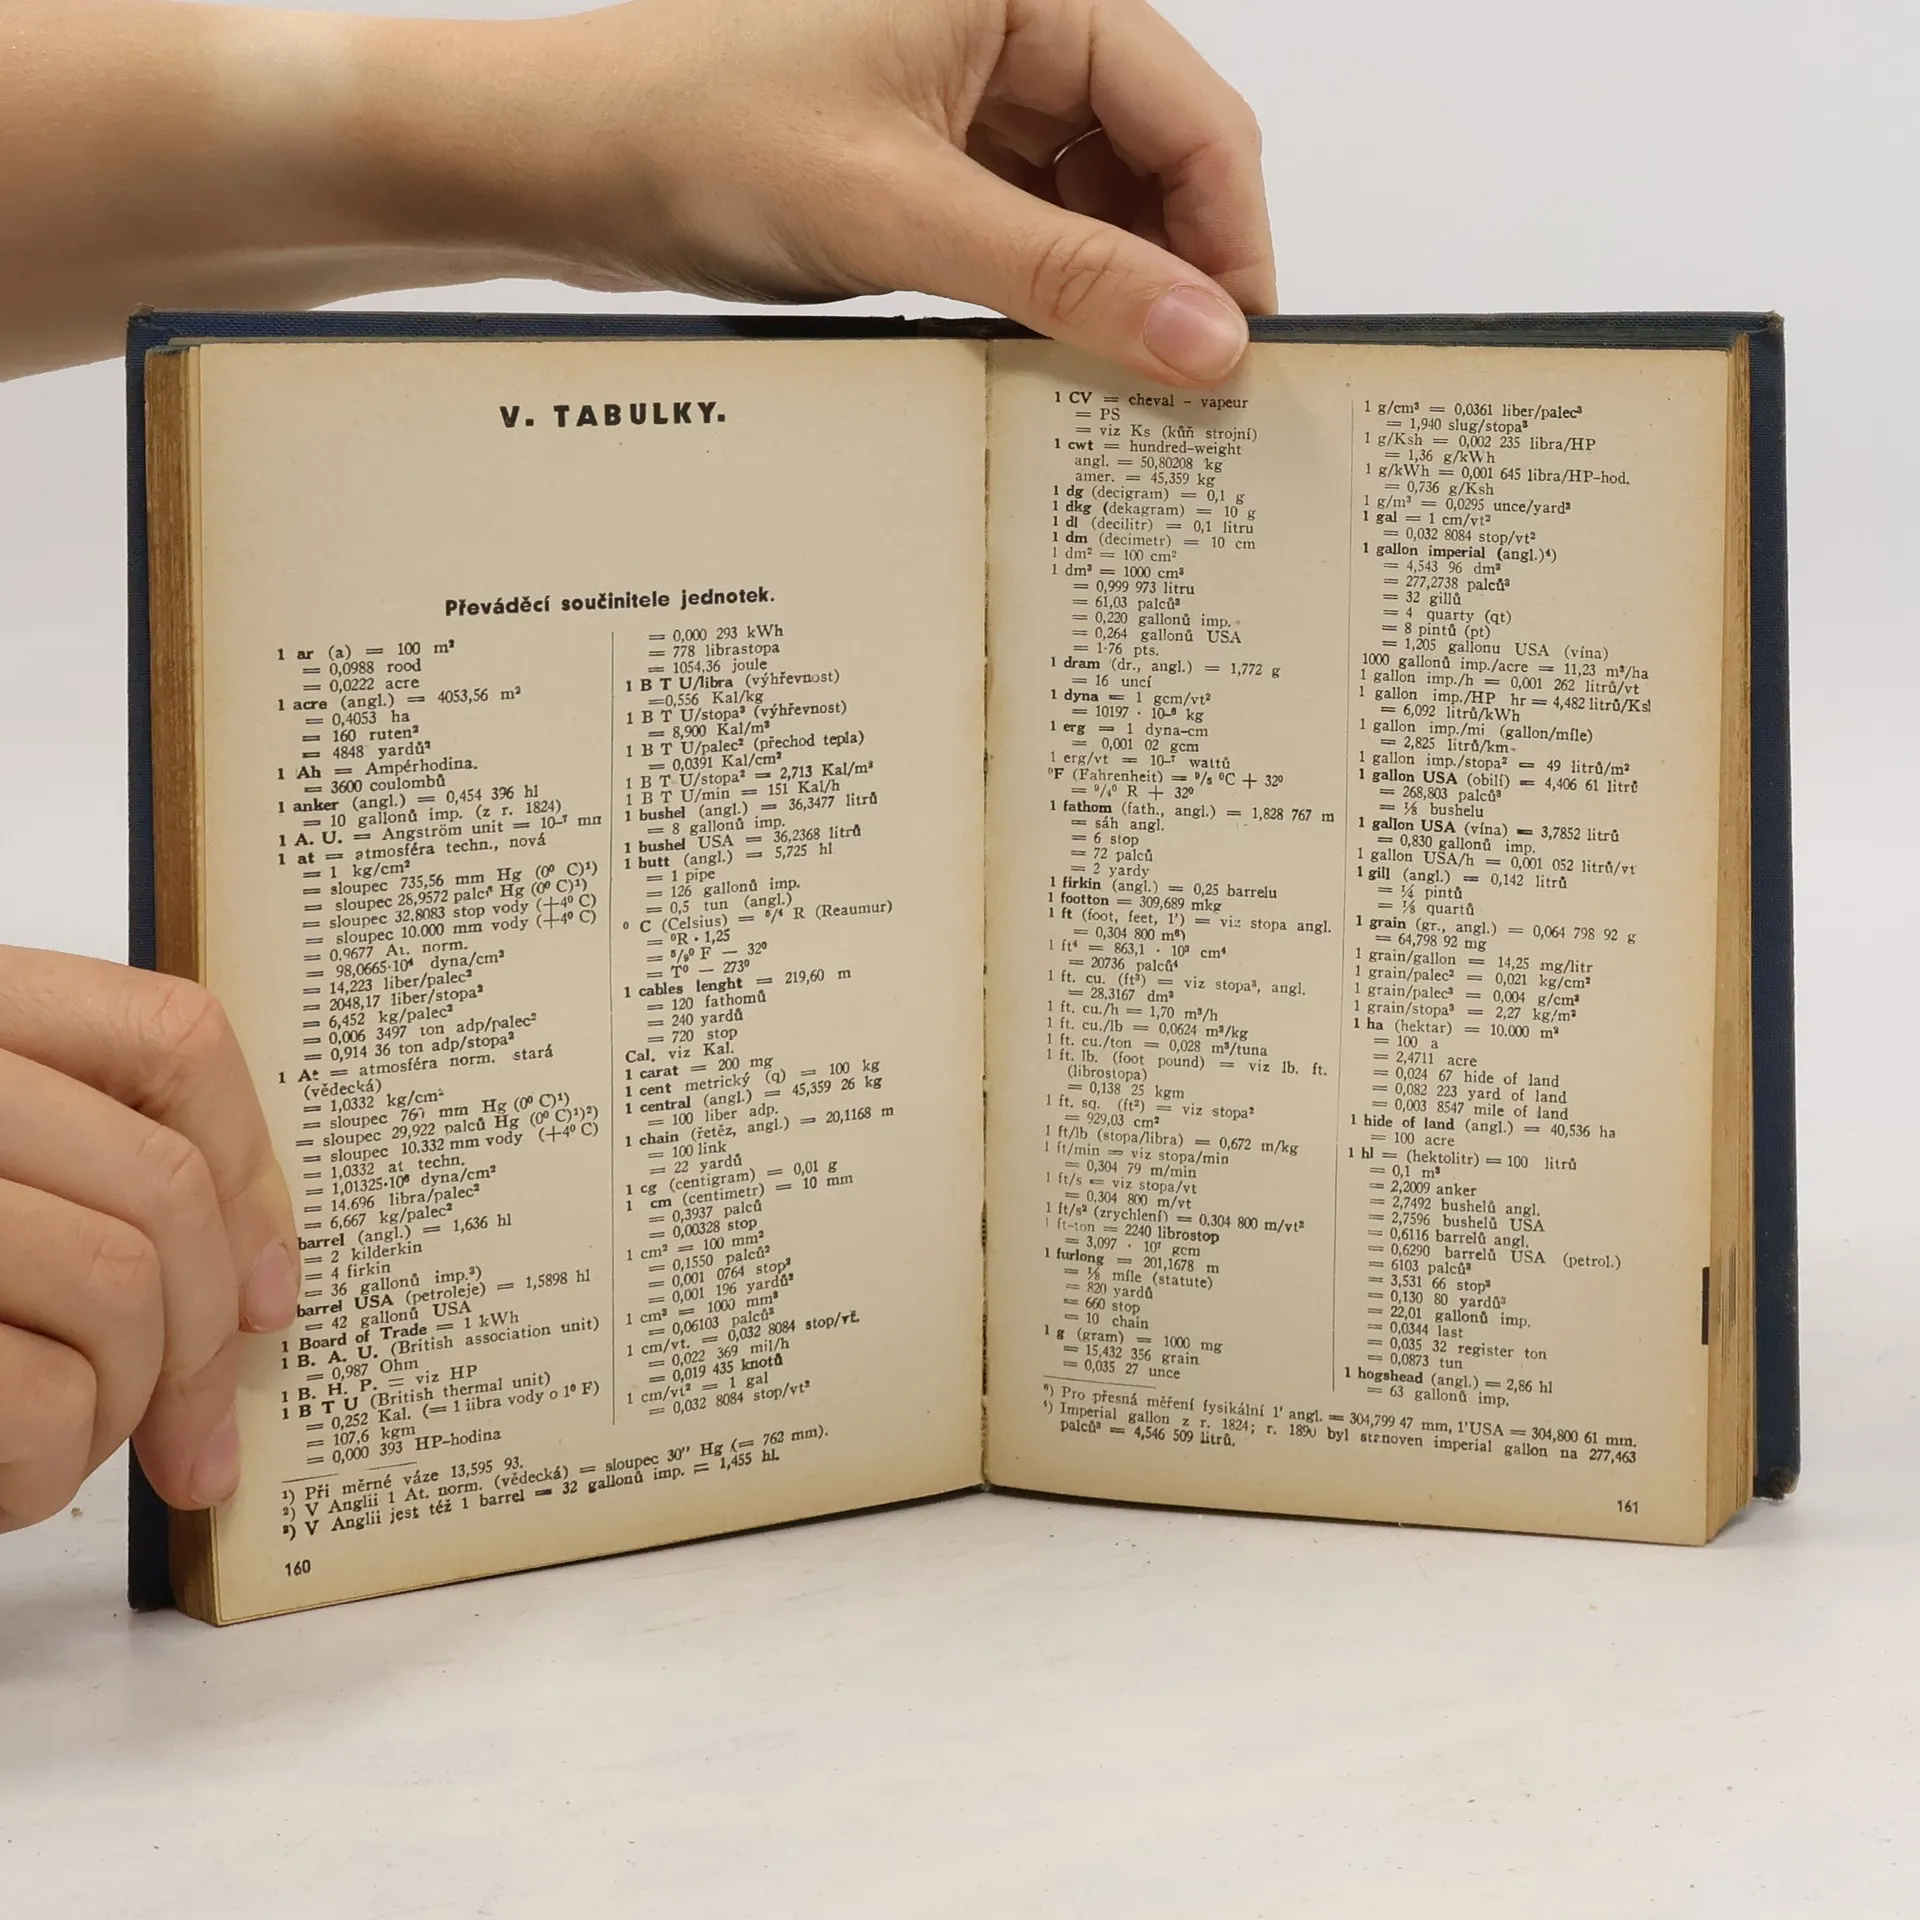 V. TABULKY.
Převáděcí součinitele jednotek.
1 ar (a) = 100 m²
= 0,0988 rood
= 0,0222 acre
1 acre (angl.) = 4053,56 m²
= 0,4053 ha
= 160 ruten²
= 4848 yardů²
1 Ah = Ampérhodina.
= 3600 coulombů
1 anker (angl.) = 0,454 396 hl
= 10 gallonů imp. (z r. 1824)
1 A. U. = Angström unit = 10-⁷ mm
1 at = atmosféra techn., nová
= 1 kg/cm²
= sloupec 735,56 mm Hg (0⁰ C)¹)
= sloupec 28,9572 palců Hg (0⁰ C)¹)
= sloupec 32,8083 stop vody (+4⁰ C)
= sloupec 10.000 mm vody (+4⁰ C)
= 0.9677 At. norm.
= 98,0665·10⁴ dyna/cm²
= 14,223 liber/palec²
= 2048,17 liber/stopa²
= 6,452 kg/palec²
= 0,006 3497 ton adp/palec²
= 0,914 36 ton adp/stopa²
1 At = atmosféra norm. stará
(vědecká)
= 1,0332 kg/cm²
= sloupec 760 mm Hg (0⁰ C)¹)
= sloupec 29,922 palců Hg (0⁰ C)¹)²)
= sloupec 10.332 mm vody (+4⁰ C)
= 1,0332 at techn.
= 1,01325·10⁶ dyna/cm²
= 14.696 libra/palec²
= 6,667 kg/palec²
barrel (angl.) = 1,636 hl
= 2 kilderkin
= 4 firkin
= 36 gallonů imp.³)
barrel USA (petroleje) = 1,5898 hl
= 42 gallonů USA
1 Board of Trade = 1 kWh
1 B. A. U. (British association unit)
= 0,987 Ohm
1 B. H. P. = viz HP
1 B T U (British thermal unit)
= 0,252 Kal. (= 1 libra vody o 1⁰ F)
= 107,6 kgm
= 0,000 393 HP-hodina
= 0,000 293 kWh
= 778 librastopa
= 1054,36 joule
1 B T U/libra (výhřevnost)
=0,556 Kal/kg
1 B T U/stopa³ (výhřevnost)
= 8,900 Kal/m³
1 B T U/palec² (přechod tepla)
= 0,0391 Kal/cm²
1 B T U/stopa² = 2,713 Kal/m²
1 B T U/min = 151 Kal/h
1 bushel (angl.) = 36,3477 litrů
= 8 gallonů imp.
1 bushel USA = 36,2368 litrů
1 butt (angl.) = 5,725 hl
= 1 pipe
= 126 gallonů imp.
= 0,5 tun (angl.)
⁰ C (Celsius) = ⁵/⁴ R (Reaumur)
= ⁰R · 1,25
= ⁵/₉⁰ F — 32⁰
= T⁰ — 273⁰
1 cables lenght = 219,60 m
= 120 fathomů
= 240 yardů
= 720 stop
Cal. viz Kal.
1 carat = 200 mg
1 cent metrický (q) = 100 kg
1 central (angl.) = 45,359 26 kg
= 100 liber adp.
1 chain (řetěz, angl.) = 20,1168 m
= 100 link
= 22 yardů
1 cg (centigram) = 0,01 g
1 cm (centimetr) = 10 mm
= 0,3937 palců
= 0,00328 stop
1 cm² = 100 mm²
= 0,1550 palců²
= 0,001 0764 stop²
= 0,001 196 yardů²
1 cm³ = 1000 mm³
= 0,06103 palců³
1 cm/vt. = 0,032 8084 stop/vt.
= 0,022 369 mil/h
= 0,019 435 knotů
1 cm/vt² = 1 gal
= 0,032 8084 stop/vt²
¹) Při měrné váze 13,595 93.
²) V Anglii 1 At. norm. (vědecká) = sloupec 30″ Hg (= 762 mm).
³) V Anglii jest též 1 barrel = 32 gallonů imp. = 1,455 hl.
160
1 CV = cheval - vapeur
= PS
= viz Ks (kůň strojní)
1 cwt = hundred-weight
angl. = 50,80208 kg
amer. = 45,359 kg
1 dg (decigram) = 0,1 g
1 dkg (dekagram) = 10 g
1 dl (decilitr) = 0,1 litru
1 dm (decimetr) = 10 cm
1 dm² = 100 cm²
1 dm³ = 1000 cm³
= 0,999 973 litru
= 61,03 palců³
= 0,220 gallonů imp.
= 0,264 gallonů USA
= 1·76 pts.
1 dram (dr., angl.) = 1,772 g
= 16 uncí
1 dyna = 1 gcm/vt²
= 10197 · 10-⁶ kg
1 erg = 1 dyna-cm
= 0,001 02 gcm
1 erg/vt = 10-⁷ wattů
⁰F (Fahrenheit) = ⁹/₅ ⁰C + 32⁰
= ⁹/₄⁰ R + 32⁰
1 fathom (fath., angl.) = 1,828 767 m
= sáh angl.
= 6 stop
= 72 palců
= 2 yardy
1 firkin (angl.) = 0,25 barrelu
1 footton = 309,689 mkg
1 ft (foot, feet, 1') = viz stopa angl.
= 0,304 800 m⁶)
1 ft⁴ = 863,1 · 10³ cm⁴
= 20736 palců⁴
1 ft. cu. (ft³) = viz stopa³, angl.
= 28,3167 dm³
1 ft. cu./h = 1,70 m³/h
1 ft. cu./lb = 0,0624 m³/kg
1 ft. cu./ton = 0,028 m³/tuna
1 ft. lb. (foot pound) = viz lb. ft.
(librostopa)
= 0,138 25 kgm
1 ft. sq. (ft²) = viz stopa²
= 929,03 cm²
1 ft/lb (stopa/libra) = 0,672 m/kg
1 ft/min = viz stopa/min
= 0,304 79 m/min
1 ft/s = viz stopa/vt
= 0,304 800 m/vt
1 ft/s² (zrychlení) = 0.304 800 m/vt²
1 ft-ton = 2240 librostop
= 3,097 · 10⁷ gcm
1 furlong = 201,1678 m
= ⅛ míle (statute)
= 820 yardů
= 660 stop
= 10 chain
1 g (gram) = 1000 mg
= 15,432 356 grain
= 0,035 27 unce
1 g/cm³ = 0,0361 liber/palec³
= 1,940 slug/stopa³
1 g/Ksh = 0,002 235 libra/HP
= 1,36 g/kWh
1 g/kWh = 0,001 645 libra/HP-hod.
= 0,736 g/Ksh
1 g/m³ = 0,0295 unce/yard³
1 gal = 1 cm/vt²
= 0,032 8084 stop/vt²
1 gallon imperial (angl.)⁴)
= 4,543 96 dm³
= 277,2738 palců³
= 32 gillů
= 4 quarty (qt)
= 8 pintů (pt)
= 1,205 gallonu USA (vína)
1000 gallonů imp./acre = 11,23 m³/ha
1 gallon imp./h = 0,001 262 litrů/vt
1 gallon imp./HP hr = 4,482 litrů/Ksl
= 6,092 litrů/kWh
1 gallon imp./mi (gallon/míle)
= 2,825 litrů/km
1 gallon imp./stopa² = 49 litrů/m²
1 gallon USA (obilí) = 4,406 61 litrů
= 268,803 palců³
= ⅛ bushelu
1 gallon USA (vína) = 3,7852 litrů
= 0,830 gallonů imp.
1 gallon USA/h = 0,001 052 litrů/vt
1 gill (angl.) = 0,142 litrů
= ¼ pintů
= ⅛ quartů
1 grain (gr., angl.) = 0,064 798 92 g
= 64,798 92 mg
1 grain/gallon = 14,25 mg/litr
1 grain/palec² = 0,021 kg/cm²
1 grain/palec³ = 0,004 g/cm³
1 grain/stopa³ = 2,27 kg/m³
1 ha (hektar) = 10.000 m²
= 100 a
= 2,4711 acre
= 0,024 67 hide of land
= 0,082 223 yard of land
= 0,003 8547 mile of land
1 hide of land (angl.) = 40,536 ha
= 100 acre
1 hl = (hektolitr) = 100 litrů
= 0,1 m³
= 2,2009 anker
= 2,7492 bushelů angl.
= 2,7596 bushelů USA
= 0,6116 barrelů angl.
= 0,6290 barrelů USA (petrol.)
= 6103 palců³
= 3,531 66 stop³
= 0,130 80 yardů³
= 22,01 gallonů imp.
= 0,0344 last
= 0,035 32 register ton
= 0,0873 tun
1 hogshead (angl.) = 2,86 hl
= 63 gallonů imp.
⁶) Pro přesná měření fysikální 1' angl. = 304,799 47 mm, 1'USA = 304,800 61 mm.
⁴) Imperial gallon z r. 1824; r. 1890 byl stanoven imperial gallon na 277,463
palců³ = 4,546 509 litrů.
161